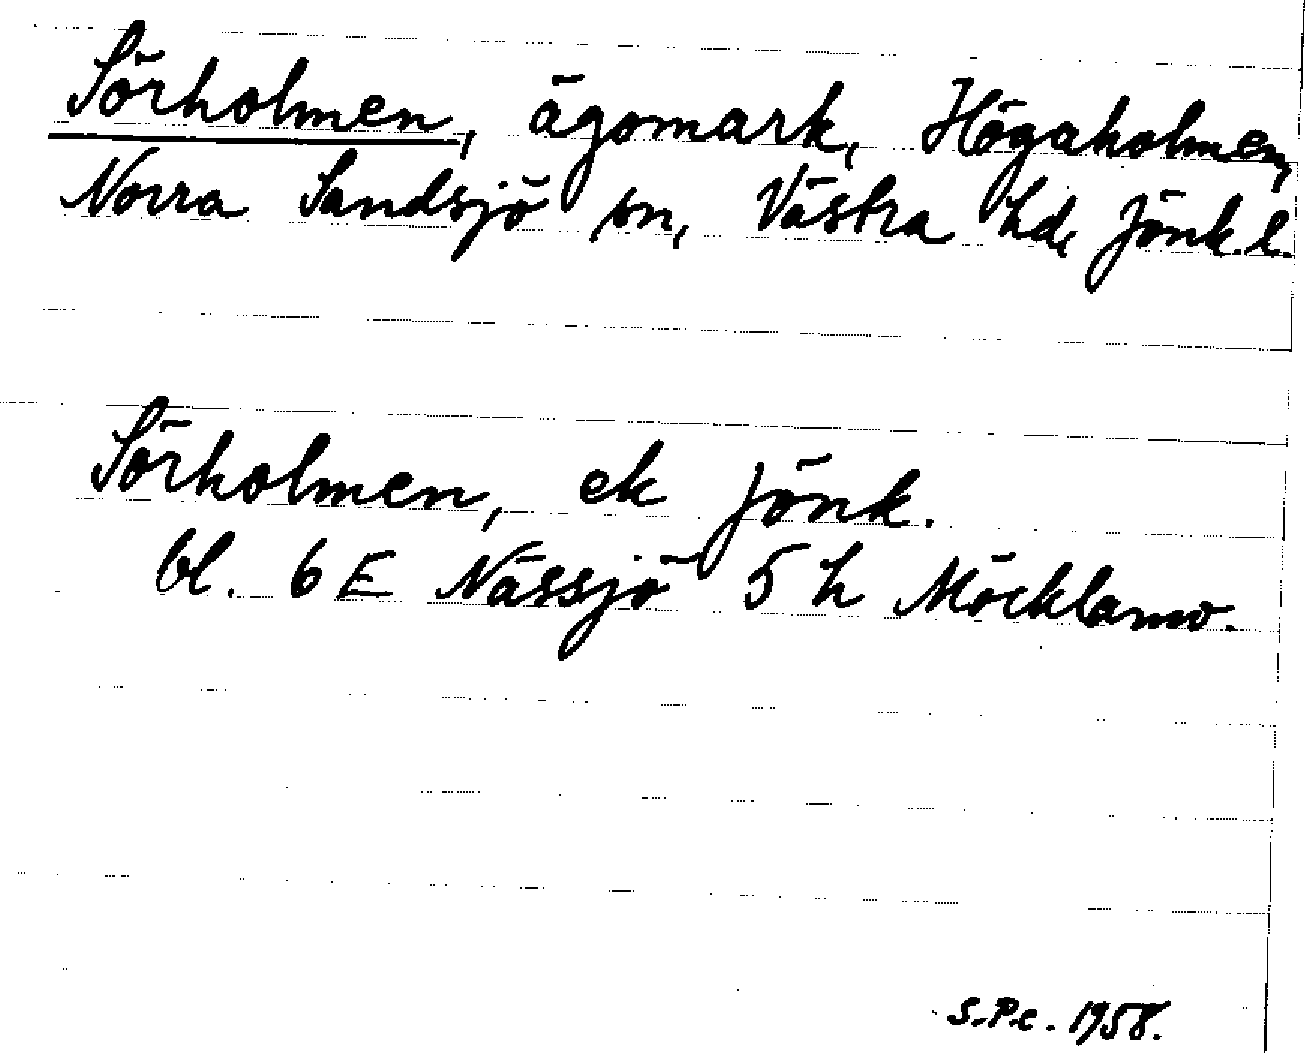 Sörholmen, ägomark, Högaholmen,
Norra Sandsjö sn, Västra hd, Jönk. l.
Sörholmen, ek Jönk.
bl. 6 E Nässjö 5 h Möcklamo.
S.P.c. 1958.